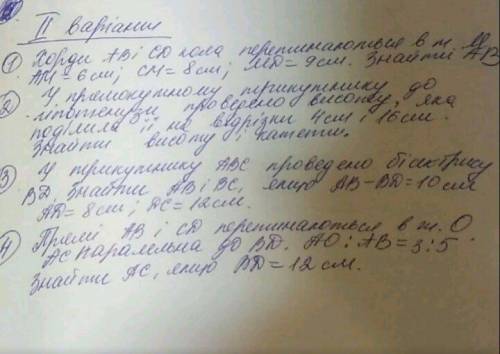 II варіант
① Хорди АВ і CD кола перетинаються в т. М.
АМ = 6 см; СМ = 8 см; MD = 9 см. Знайти АВ
② У прямокутному трикутнику до
гіпотенузи проведено висоту, яка
поділила її на відрізки 4 см і 16 см.
Знайти висоту і катети.
③ У трикутнику АВС проведено бісектрису
BD. Знайти АВ і ВС, якщо АВ – BD = 10 см
AD = 8 см; DC = 12 см.
④ Прямі АВ і CD перетинаються в т. О.
АС паралельна до BD. АО : АВ = 3 : 5
Знайти АС, якщо BD = 12 см.